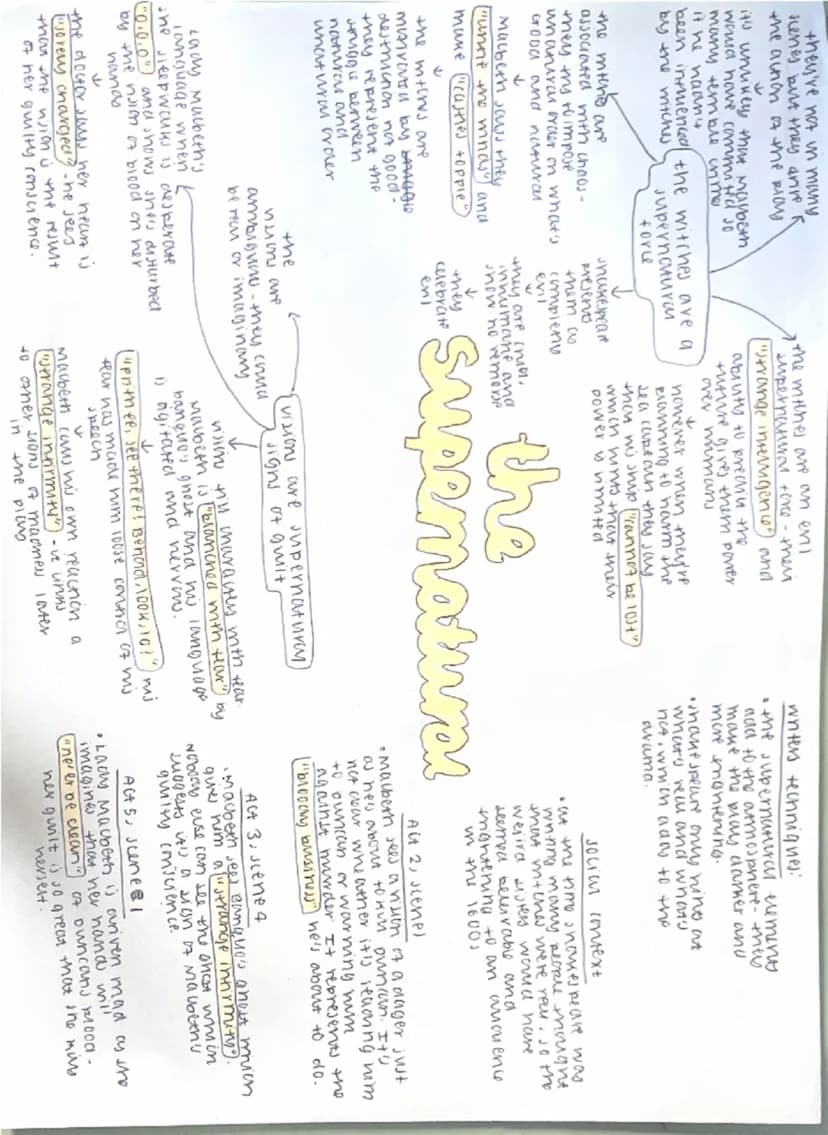 they're not in many
scenes but they are
the authn of the play
it's unlikely that Macbeth
would have committed so
many terrible crimes
if he hadn't
been influenced
by the witches
the witches are a
supernatural
force
the witches are an evil
supernatural force - their
"strange intelligence" and
ability to predict the
future gives them power
over humans
however when they're
planning to harm the
sea captain they say
then his ship "cannot be lost"
which hints that their
power is limited
the witches are
associated with chaos -
they try to impose
unnatural order on what's
good and natural
Macbeth says they
"untie the winds" and
make "castles topple"
the witches are
motivated by
destruction not good -
they represent the
struggle between
natural and
unnatural order
shakespear
presents
them as
completely
evil
they are cruel,
inhumane and
show no remorse
they
celebrate
evil
the
supernatural
writers techniques:
• the supernatural elements
add to the atmosphere - they
make the play darker and
more frightening.
• shakespeare only hints at
what's real and what's
not, which adds to the
drama.
social context
• at the time shakespeare was
writing many people thought
that witches were real, so the
weird sisters would have
seemed believable and
frightening to an audience
in the 1600s
visions are supernatural
signs of guilt
the
visions are
ambiguous - they could
be real or imaginary
Lady Macbeth's
language when
she sleepwalks is desperate
"O,O,O" and shows she's disturbed
by the vision of blood on her
hands
the doctor says her heart is
"sorely charged" - he sees
that the vision is the result
of her guilty conscience.
visions fill characters with fear.
Macbeth is "blanched with fear" by
banquo's ghost and his language
is agitated and nervous.
"prithee, see there! Behold, look, lo!" his
fear has made him lose control of his
speech
Macbeth calls his own reaction a
"strange infirmity" - it links
to other signs of madness later
in the play
Act 2, scene 1
• Macbeth sees a vision of a dagger just
as he's about to kill duncan. It's
not clear whether it's leading him
to duncan or warning him
against murder. It represents the
"bloody business" he's about to do.
Act 3, scene 4
• Macbeth sees Banquo's ghost which
gives him a "strange infirmity".
nobody else can see the ghost which
suggests it's a sign of Macbeth's
guilty conscience
Act 5, scene 1
• Lady Macbeth is driven mad as she
imagines that her hands will
"ne'er be clean" of duncan's blood -
her guilt is so great that she kills
herself.